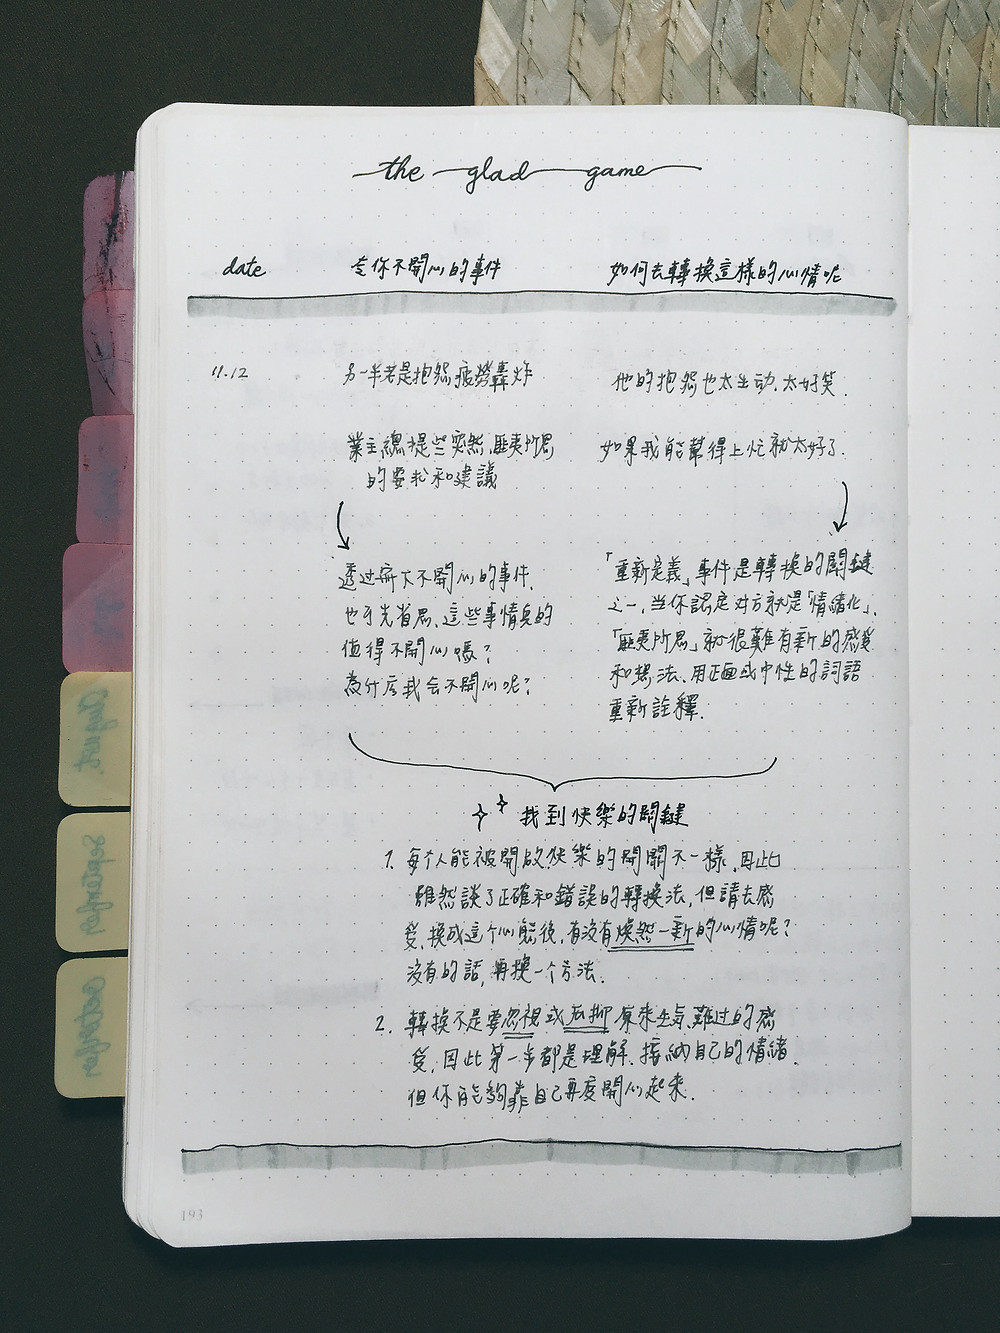 the glad game
date 令你不開心的事件 如何去轉換這樣的心情呢
11.12 另一半老是抱怨疲勞轟炸 他的抱怨也太生动、太好笑.
業主總提些突然、匪夷所思
的要求和建議
如果我能幫得上忙就太好了.
透过寫下不開心的事件,
也可先省思、這些事情真的
值得不開心嗎?
為什么我会不開心呢?
「重新定義」事件是轉換的關鍵
之一, 当你認定対方就是「情緒化」、
「匪夷所思」就很難有新的感受
和想法、用正面或中性的詞語
重新詮釋.
找到快樂的關鍵
1. 每个人能被開啟快樂的開關不一樣、因此
雖然談了正確和錯誤的轉換法, 但請去感
受、換成這个心態後, 有没有煥然一新的心情呢?
没有的話, 再換一个方法.
2. 轉換不是要忽視或压抑原来生氣、難过的感
受、因此第一步都是理解、接納自己的情緒
但你能夠靠自己再度開心起来.
193
August
September